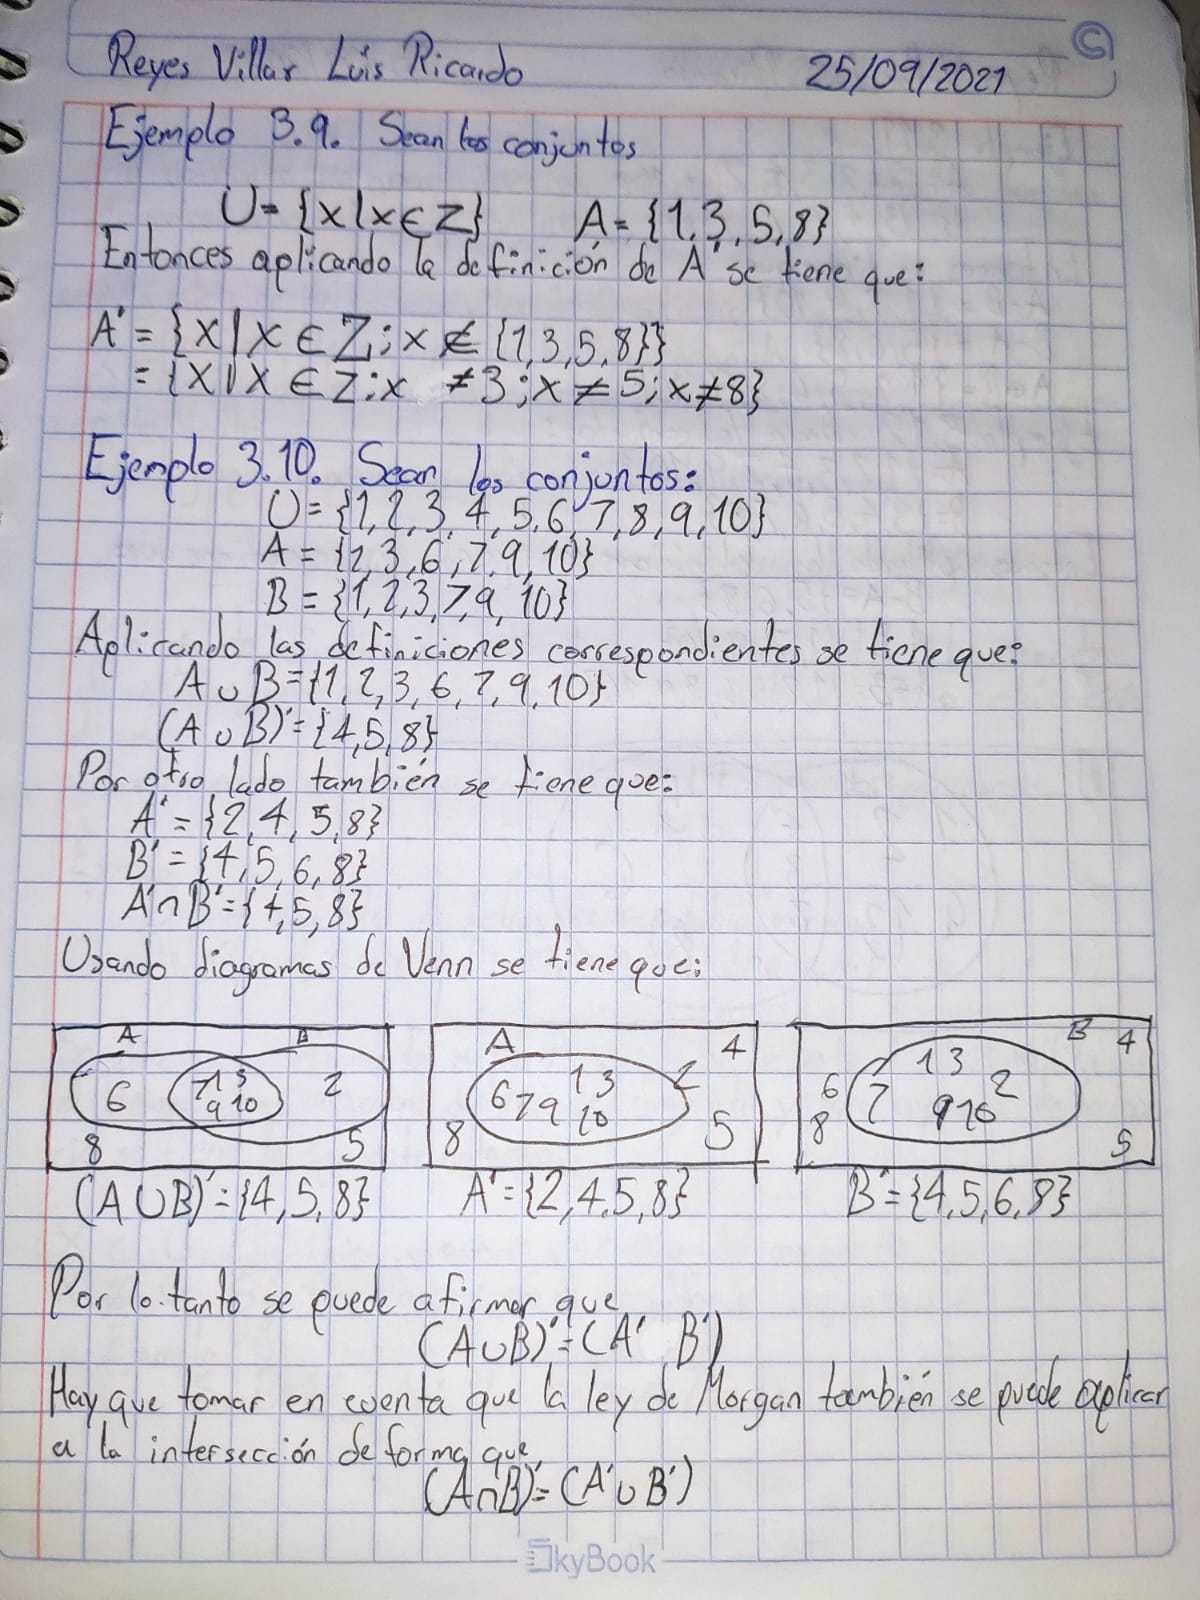 Reyes Villar Luis Ricardo 25/09/2021
Ejemplo 3.9. Sean los conjuntos
U= {x|x∈Z} A= {1,3,5,8}
Entonces aplicando la definición de A' se tiene que:
A' = {x|x ∈ Z; x ∉ {1,3,5,8}}
= {x|x ∈ Z; x ≠3; x ≠ 5; x≠8}
Ejemplo 3.10. Sean los conjuntos:
U= {1,2,3,4,5,6,7,8,9,10}
A = {1,3,6,7,9,10}
B = {1,2,3,7,9,10}
Aplicando las definiciones correspondientes se tiene que:
A∪B={1,2,3,6,7,9,10}
(A∪B)'={4,5,8}
Por otro lado también se tiene que:
A'={2,4,5,8}
B'={4,5,6,8}
A'∩B'={4,5,8}
Usando diagramas de Venn se tiene que:
A B
6 7 1 3 9 10 2
8 5
A 4
6 7 9 1 3 10 2
8 5
B 4
6 7 1 3 9 10 2
8 5
(A∪B)'={4,5,8} A'={2,4,5,8} B'={4,5,6,8}
Por lo tanto se puede afirmar que
(A∪B)'=(A' B')
Hay que tomar en cuenta que la ley de Morgan también se puede aplicar
a la intersección de forma que
(A∩B)'= (A'∪B')
SkyBook